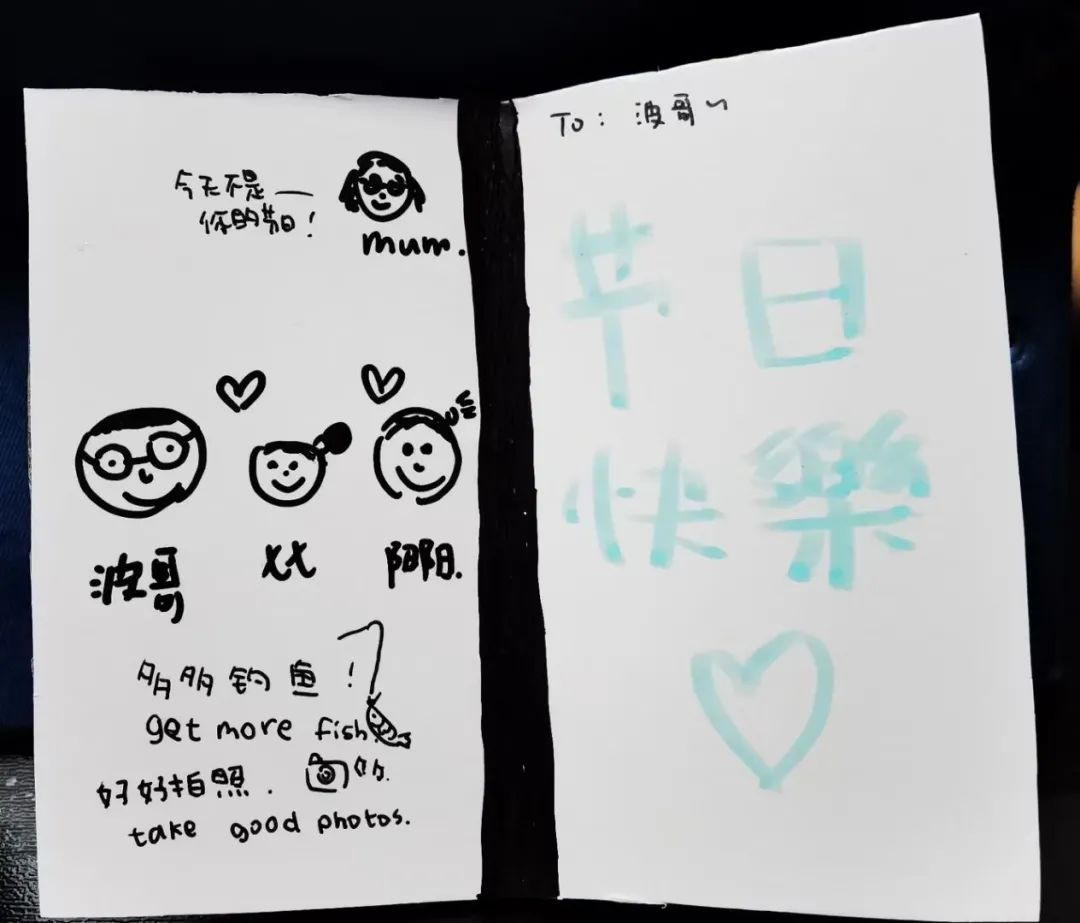 今天不是
你的节日!
mum.
波哥
XX
阳阳.
多多钓鱼!
get more fish.
好好拍照.
take good photos.
To: 波哥~
节日
快樂